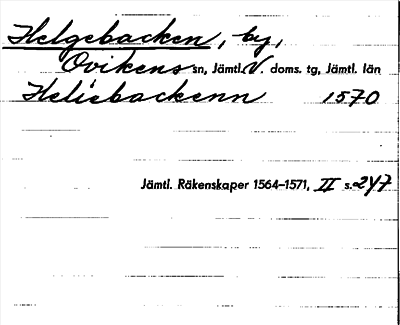 Helgebacken, by,
Ovikens sn, Jämtl. V. doms. tg, Jämtl. län
Heliebackenn 1570
Jämtl. Räkenskaper 1564–1571, II s. 247